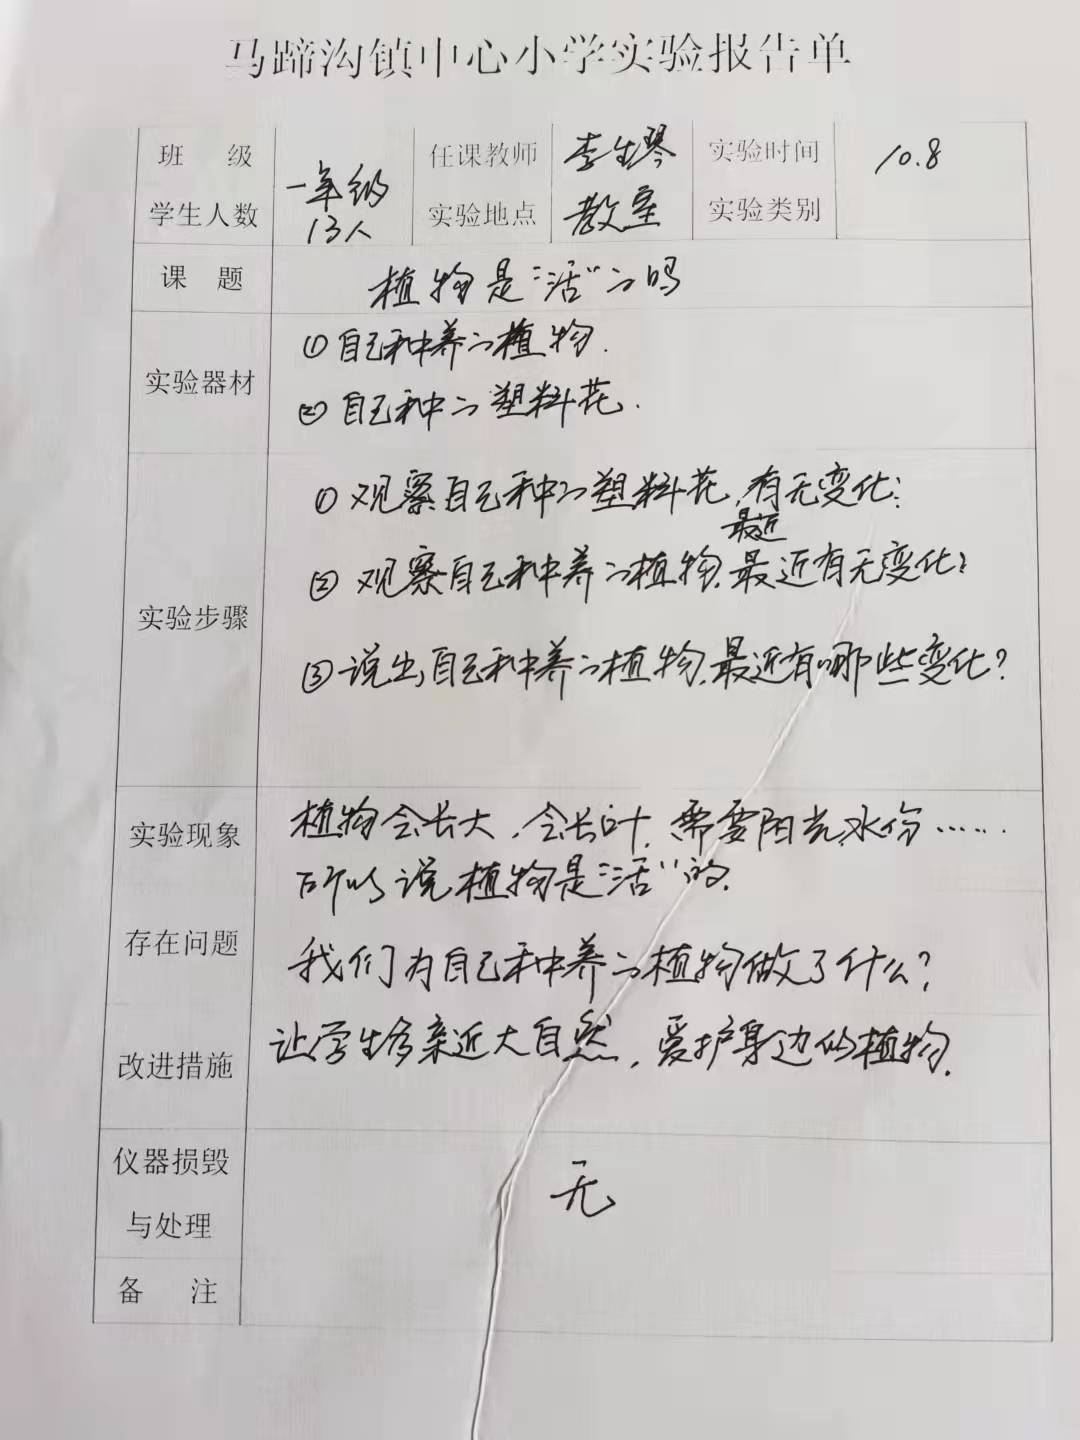 马蹄沟镇中心小学实验报告单
班 级 一年级 任课教师 李生琴 实验时间 10.8
学生人数 13人 实验地点 教室 实验类别
课 题 植物是“活”的吗
实验器材
①自己种养的植物.
②自己种的塑料花.
实验步骤
①观察自己种的塑料花,有无变化?
最近
②观察自己种养的植物,最近有无变化?
③说出自己种养的植物,最近有哪些变化?
实验现象 植物会长大,会长叶,需要阳光水份……
所以说植物是“活”的.
存在问题 我们为自己种养的植物做了什么?
改进措施 让学生多亲近大自然,爱护身边的植物.
仪器损毁
与处理
无
备 注